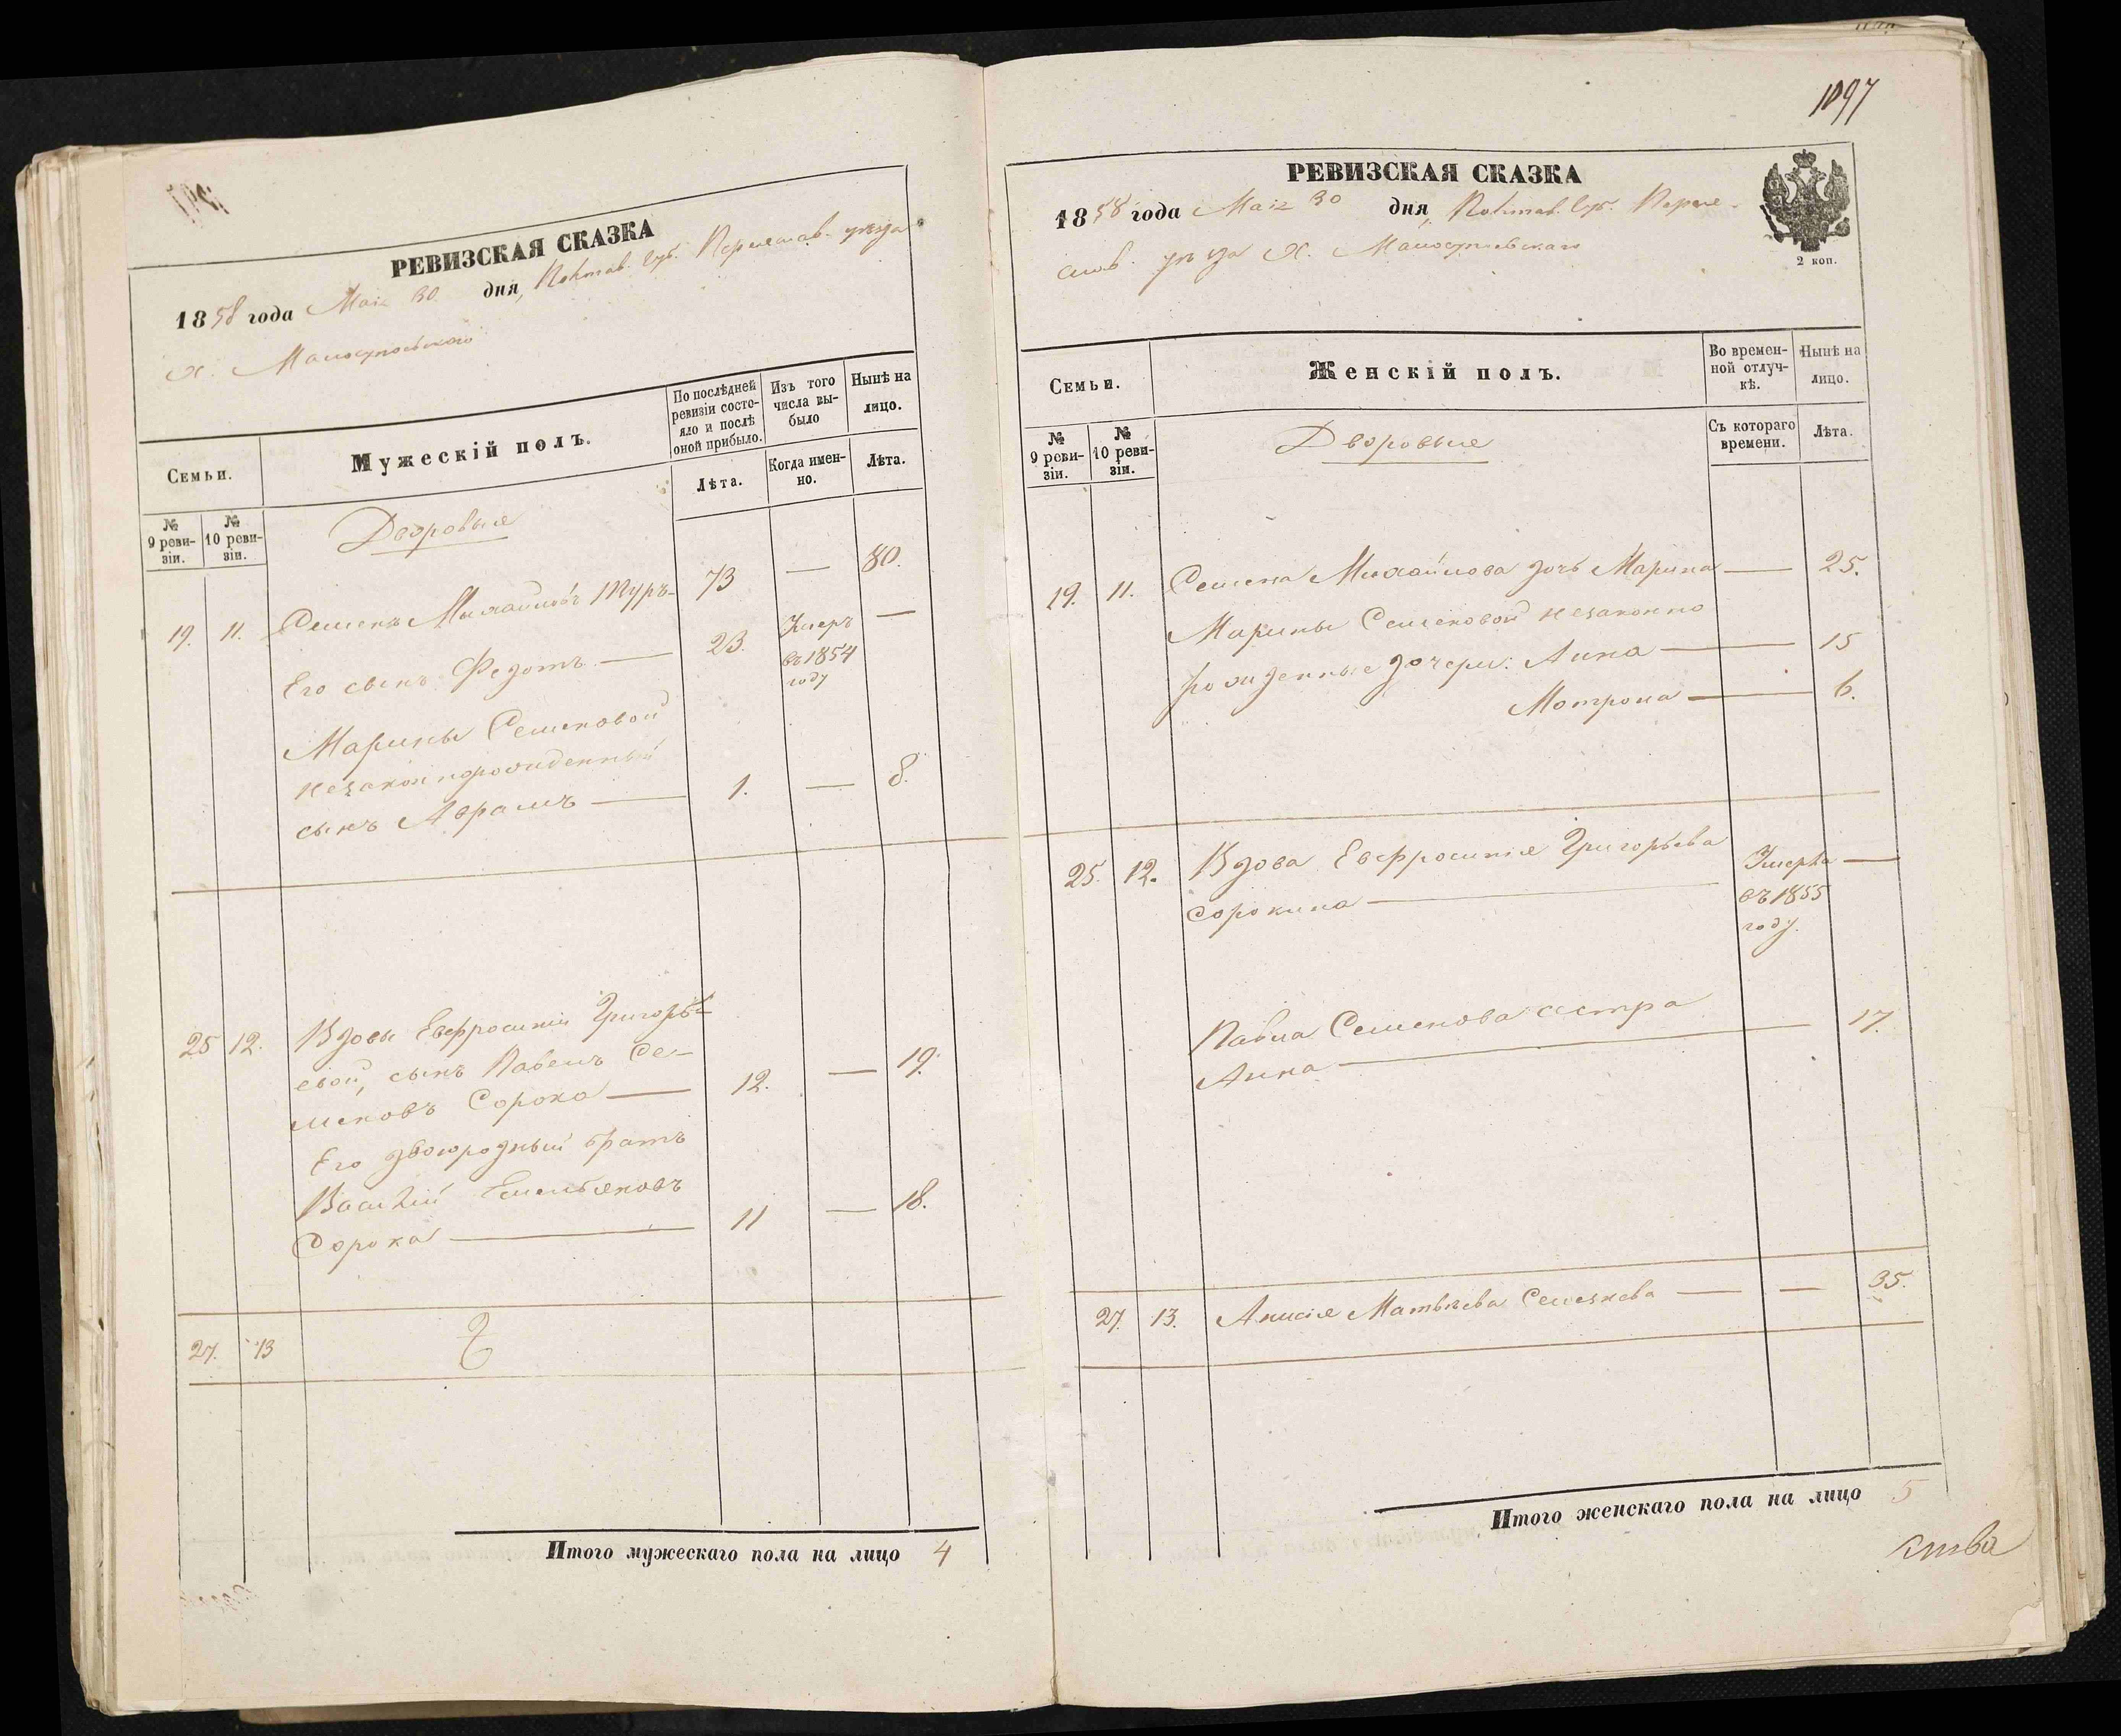 РЕВИЗСКАЯ СКАЗКА
1858 года Маія 30 дня, Полтав. Губ. Переяслав. уѣзда
х. Малосупоевскаго
Семьи.
Мужескій полъ.
По послѣдней ревизіи состояло и послѣ оной прибыло.
Изъ того числа выбыло
Нынѣ на лицо.
№ 9 ревизіи.
№ 10 ревизіи.
Лѣта.
Когда именно.
Лѣта.
Дворовые
19. 11. Семенъ Михайловъ Туръ- 73 — 80.
Его сынъ Федотъ — 23. Умеръ въ 1854 году —
Марины Семеновой
незаконнорожденный
сынъ Аврамъ — 1. — 8.
25 12. Вдовы Евфросиніи Григорье-
евой, сынъ Павелъ Се-
меновъ Сорока — 12. — 19.
Его двоюродный братъ
Василій Емельяновъ
Сорока — 11 — 18.
27. 13
Итого мужескаго пола на лицо 4
1097
РЕВИЗСКАЯ СКАЗКА
1858 года Маія 30 дня, Полтав. Губ. Перея-
слов. уѣзда х. Малосупоевскаго
2 коп.
Семьи.
Женскій полъ.
Во временной отлучкѣ.
Нынѣ на лицо.
№ 9 ревизіи.
№ 10 ревизіи.
Съ котораго времени.
Лѣта.
Дворовые
19. 11. Семена Михайлова дочь Марина — 25.
Марины Семеновой незаконно
рожденные дочери: Анна — 15
Мотрона — 6.
25. 12. Вдова Евфросинія Григорьева
Сорокина — Умерла въ 1855 году. —
Павла Семенова сестра
Анна — 17.
27. 13. Анисія Матвѣева — — 35.
Итого женскаго пола на лицо 5